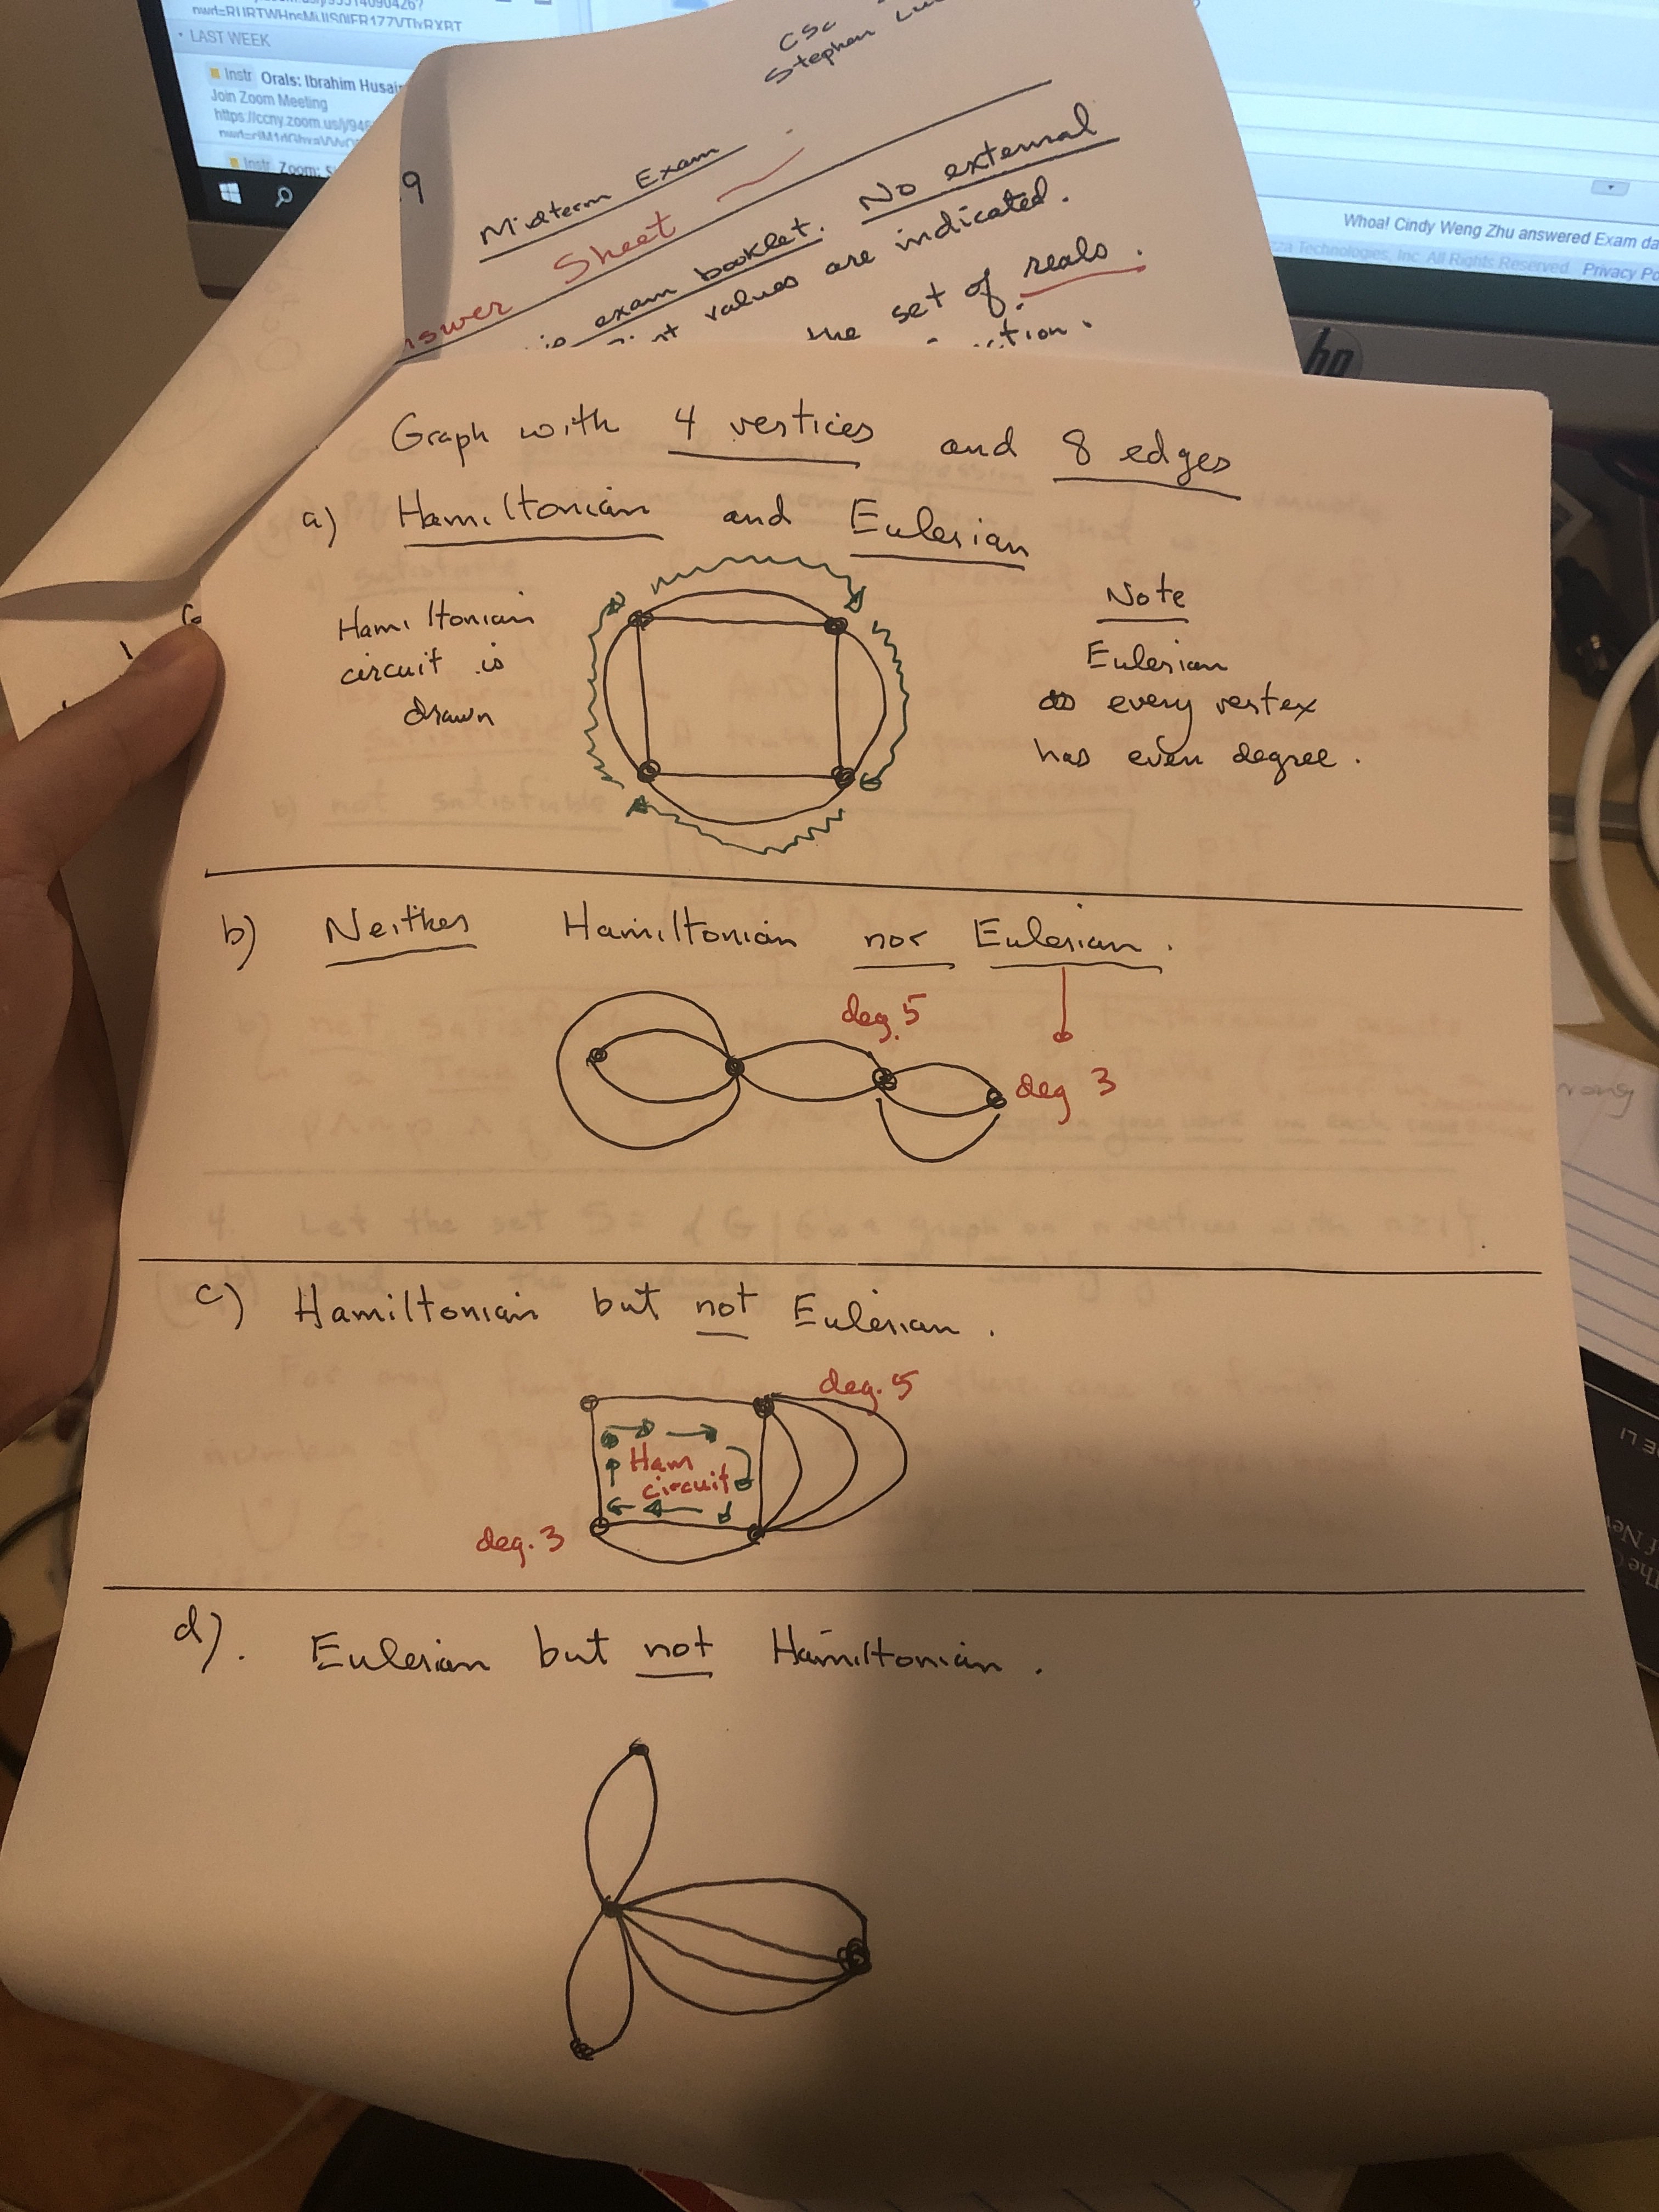 LAST WEEK
Instr Orals: Ibrahim Husai
Join Zoom Meeting
https://ccny.zoom.us/j/946
Instr Zoom:
Whoa! Cindy Weng Zhu answered Exam da
Technologies, Inc. All Rights Reserved. Privacy Po
hp
CSc
Stephen
9
Midterm Exam
nswer Sheet
exam booklet. No external
values are indicated.
the set of reals.
Graph with 4 vertices and 8 edges
a) Hamiltonian and Eulerian
Hamiltonian
circuit is
drawn
Note
Eulerian
every vertex
has even degree.
b) Neither Hamiltonian nor Eulerian.
deg. 5
deg 3
c) Hamiltonian but not Eulerian.
deg. 5
Ham
circuit
deg. 3
d). Eulerian but not Hamiltonian.